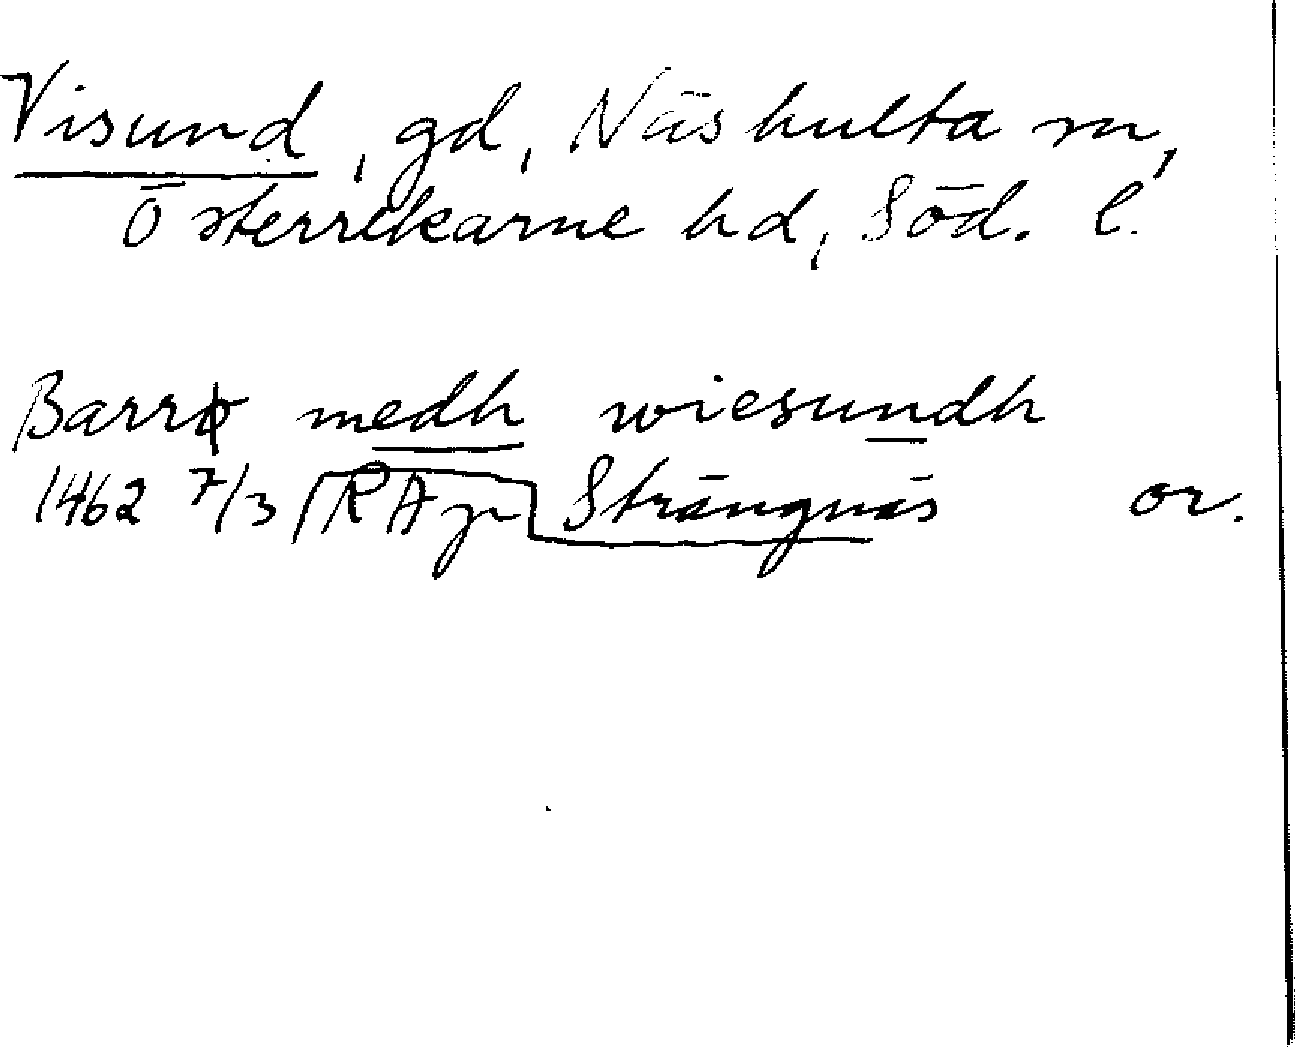 Visund, gd, Näshulta sn,
Österrekarne hd, Söd. l.
Barrø medh wiesundh
1462 7/3 RAp Strängnäs or.